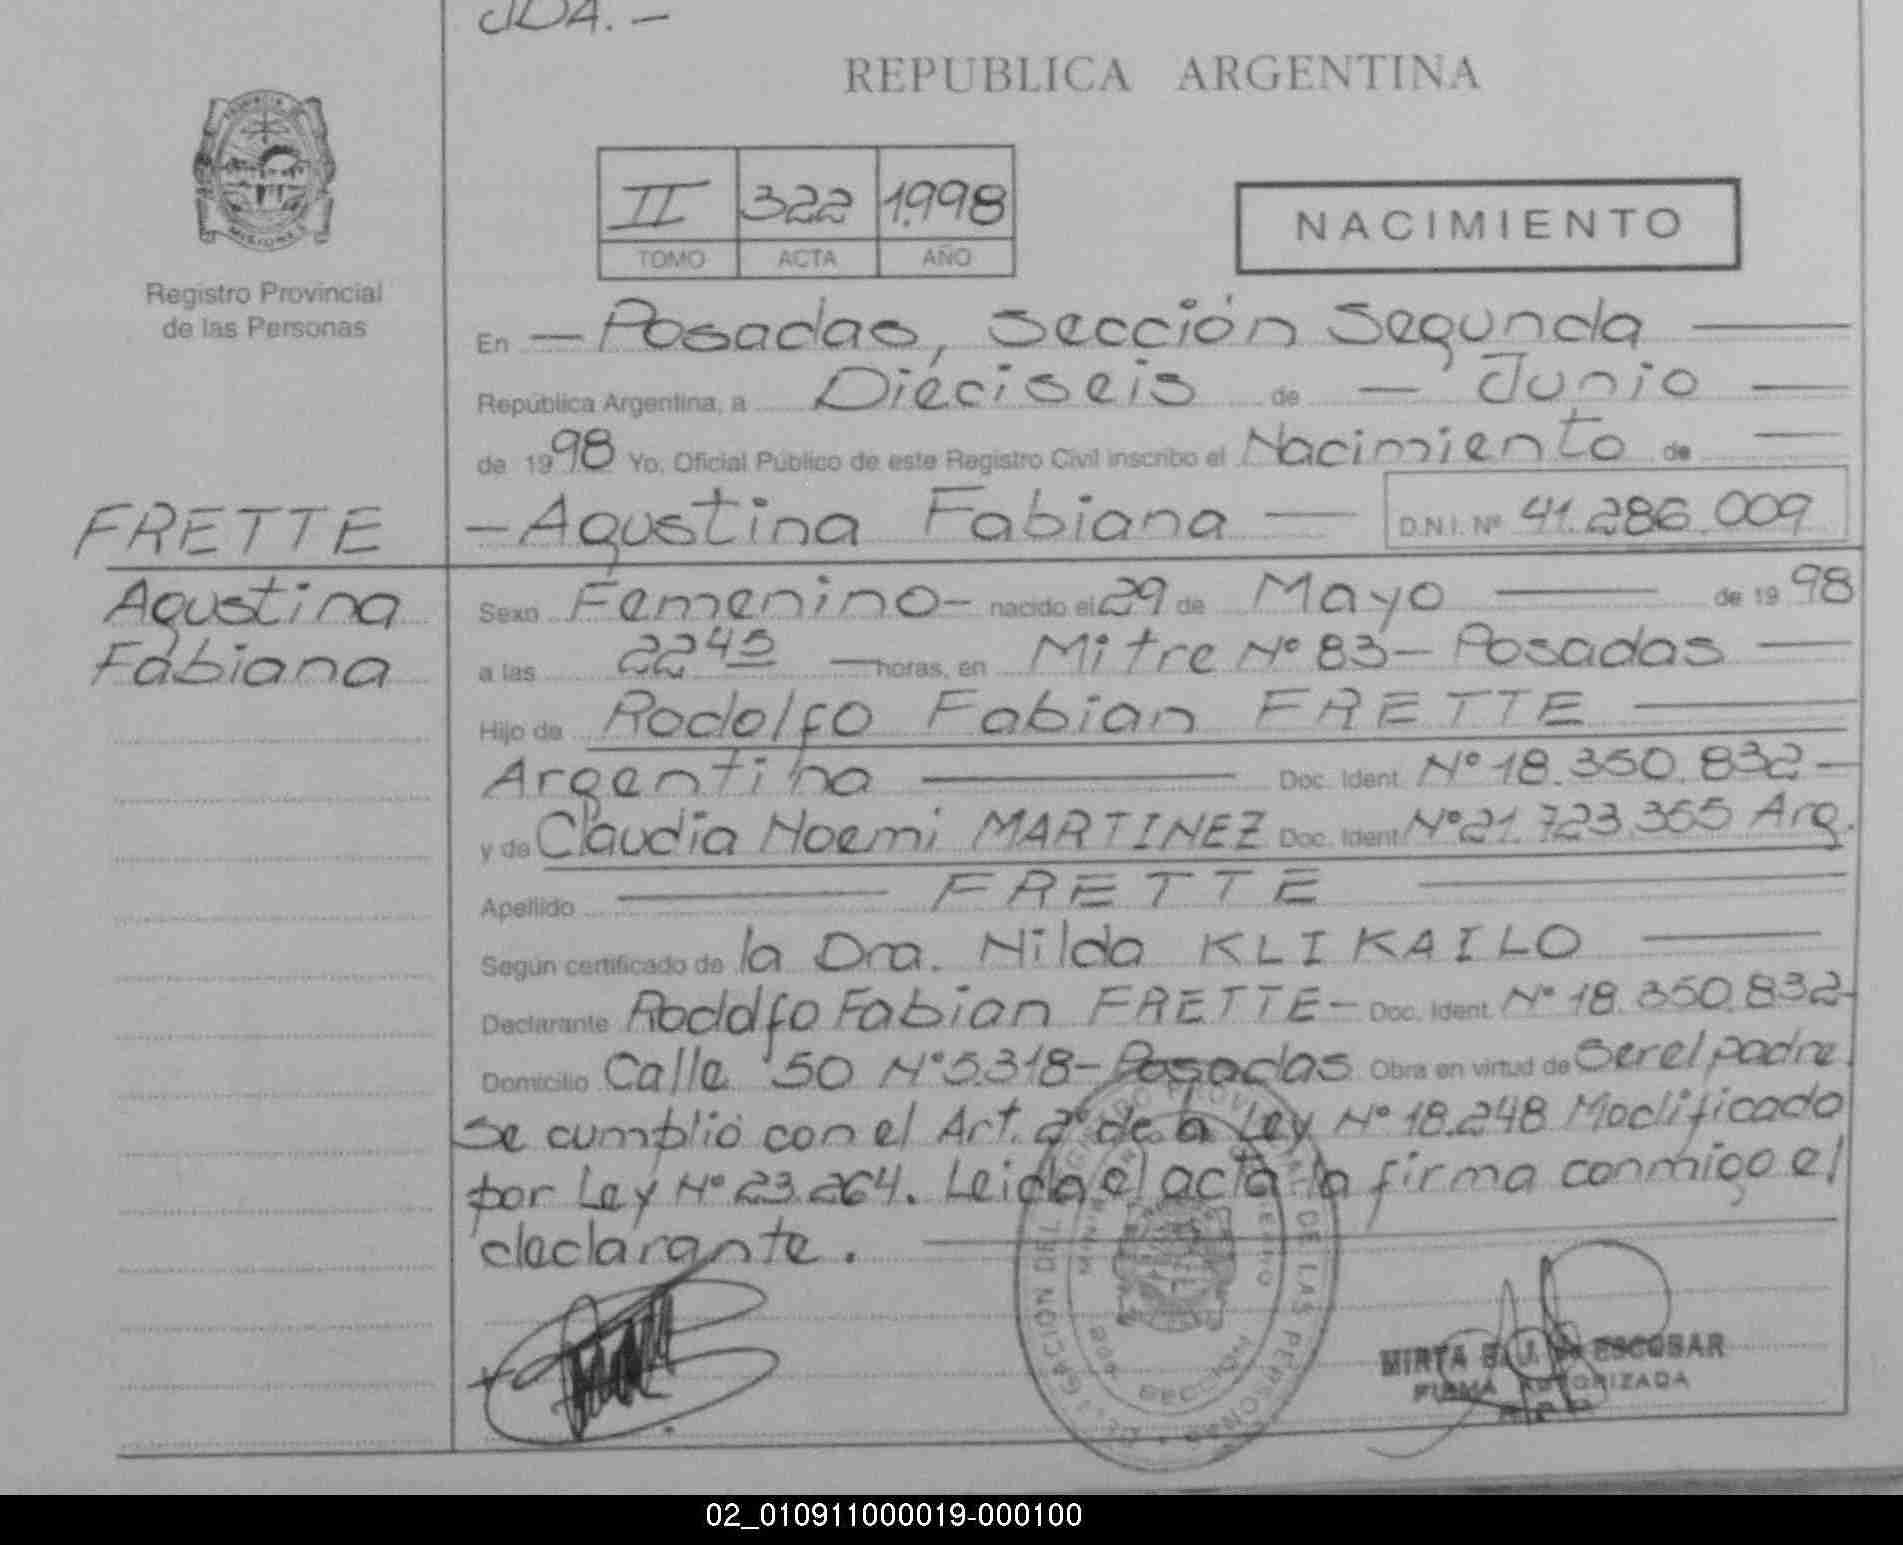 JDA.-
REPUBLICA ARGENTINA
MISIONES
Registro Provincial
de las Personas
II 322 1998
TOMO ACTA AÑO
NACIMIENTO
En - Posadas, Sección Segunda
República Argentina, a Dieciseis de - Junio
de 1998 Yo, Oficial Público de este Registro Civil inscribo el Nacimiento de
FRETTE - Agustina Fabiana - D.N.I. Nº 41.286.009
Agustina Sexo Femenino - nacido el 29 de Mayo de 1998
Fabiana a las 2245 horas, en Mitre Nº 83 - Posadas
Hijo de Rodolfo Fabian FRETTE
Argentina Doc. Ident. Nº 18.350.832-
y de Claudia Noemi MARTINEZ Doc. Ident. Nº 21.723.365 Arg.
Apellido FRETTE
Según certificado de la Dra. Nilda KLIKAILO
Declarante Rodolfo Fabian FRETTE - Doc. Ident. Nº 18.350.832-
Domicilio Calle 50 Nº 5318 - Posadas Obra en virtud de Ser el padre.
Se cumplió con el Art. 2º de la Ley Nº 18.248 Modificado
por Ley Nº 23.264. Leida el acta la firma conmigo el
declarante.
MIRTA ESCOBAR
FIRMA AUTORIZADA
02_010911000019-000100